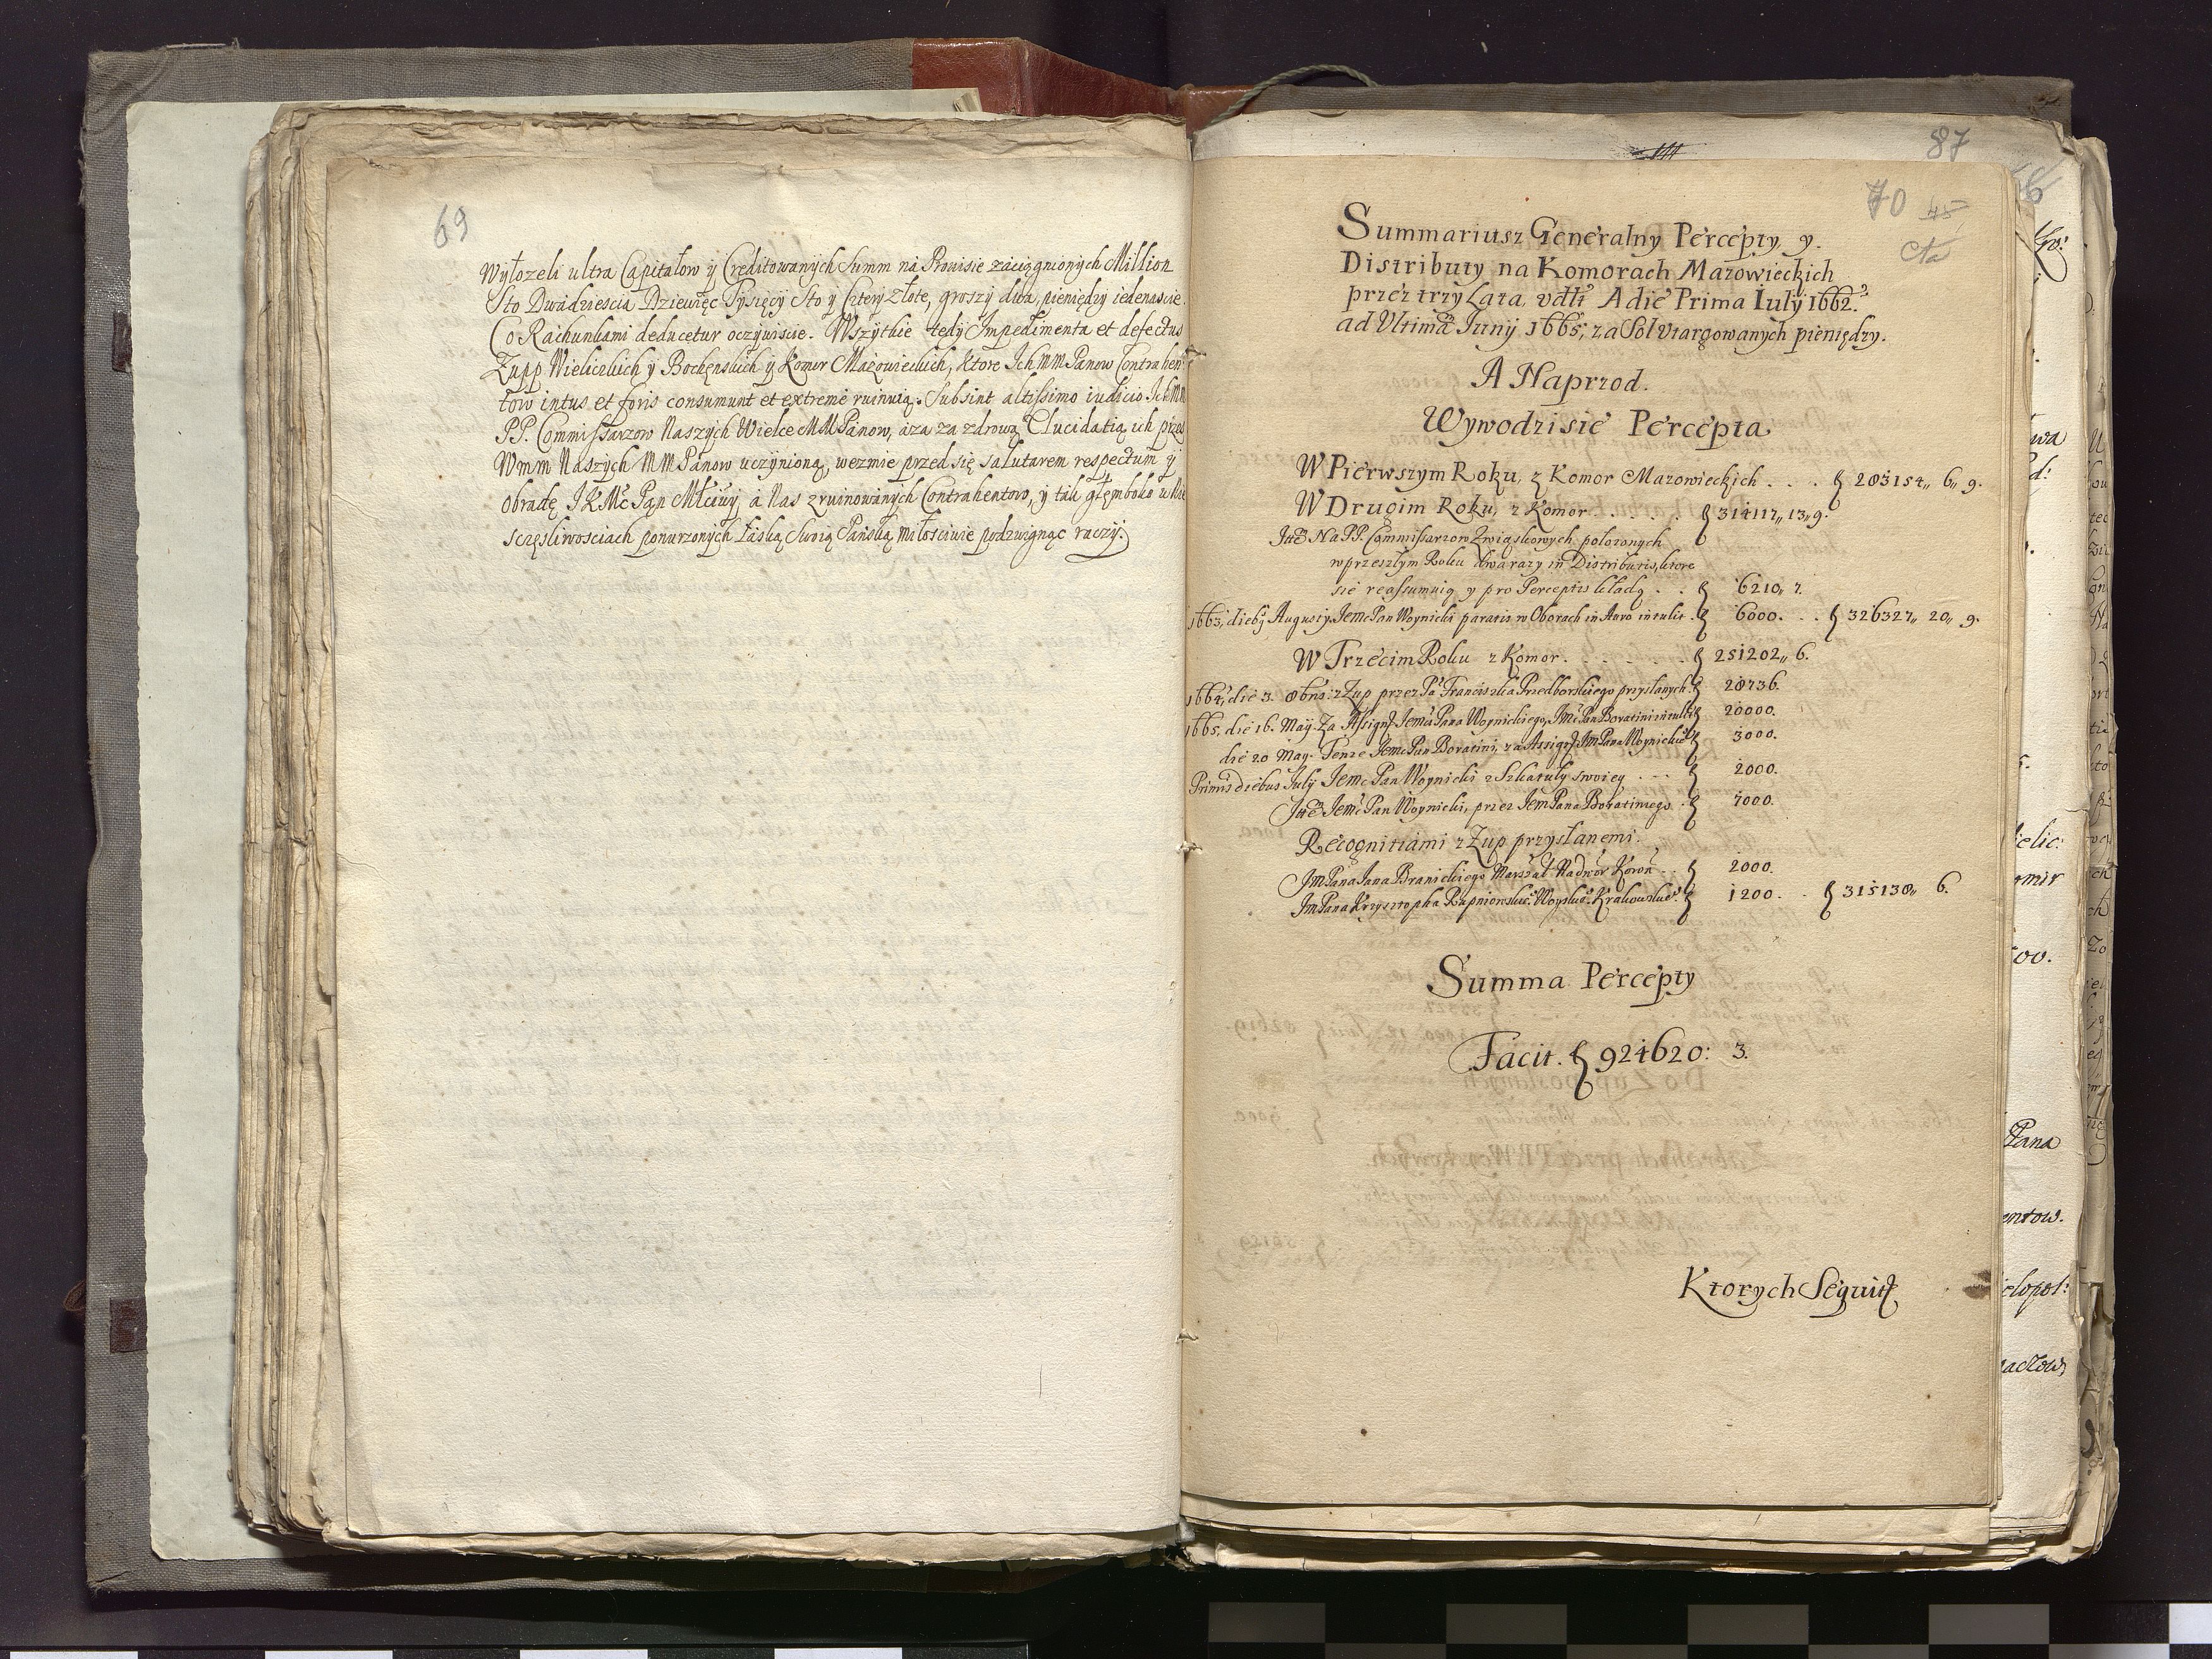 69
Wyłozeli ultra Capitałow y Creditowanych Summ na Prouisie zaciągnionych Million
Sto Dwadziescia Dziewięc Tysięcy Sto y Cztery złote, groszy dwa, pieniędzy iedenascie.
Co Rachunkami deducetur oczywiscie. Wszytkie tedy Impedimenta et defectus
Zupp Wielickich y Bochęnskich y Komor Mazowieckich, ktore Ich MM Panow Contrahen=
tow intus et foris consumunt et extremè ruinuią. Subsint altissimo iudicio Ich Mm
PP. Commissarzow Naszych Wielce MM Panow, aza za zdrową Elucidatią ich przed
Wmm Naszych MM Panow uczynioną, wezmie przed się salutarem respectum y
obradę J K Mc Pan Młciwy, a Nas zruinowanych Contrahentow, y tak głęmboko w Nie
sczęsliwosciach ponurzonych Łaską Swoią Panską miłosciwie podzwignąc raczy.
87
70 45
cta
Summariusz Generalny Percepty y
Distributy na Komorach Mazowieckich
przez trzy Lata, vdłź A die Prima Iuly 1662.
ad Vltimã Juny 1665, za Sol vtargowanych pieniędzy.
A Naprzod.
Wywodzi sie Percepta
W Pierwszym Roku, z Komor Mazowieckich . . . ƒ 283154„ 6„ 9.
W Drugim Roku, z Komor . . . . . ƒ 314117„ 13„ 9.
Itẽ Na PP. Commissarzow Zwiąskowych polozonych
w przeszłym Roku dwa razy in Distributis, ktore
się reassumuią y pro Perceptis kładą . . ƒ 6210„ 7.
1663, die 6 Augusty Jemc Pan Woynicki paratis w Oborach in Auro intulit . ƒ 6000. . . ƒ 326327„ 20„ 9.
W Trzecim Roku z Komor . . . . . . ƒ 251202„ 6.
1664, die 3. 8bris z Zup przez Pa Franciszka Przedborskiego przysłanych ƒ 28736.
1665, die 16. May. Za Assigną Jemci Pana Woynickiego, JMc Pan Boratini intulit ƒ 20000.
die 20 May. Tenze Jemc Pan Boratini, za Assigną JM Pana Woynickiē ƒ 3000.
Primis diebus July Jemc Pan Woynicki z Szkatuły swoiey . . . ƒ 2000.
Itẽ Jemc Pan Woynicki, przez Jem Pana Boratiniego . ƒ 7000.
Recognitiami z Zup przysłanemi.
Jm Pana Jana Branickiego Marszał Nadwor Koron . . ƒ 2000.
Jm Pana Krzysztopha Rupniowskiē. Woyskiē. Krakowskiē. ƒ 1200. . . ƒ 315138„ 6.
Summa Percepty
Facit. ƒ 924620: 3.
Ktorych Sequit